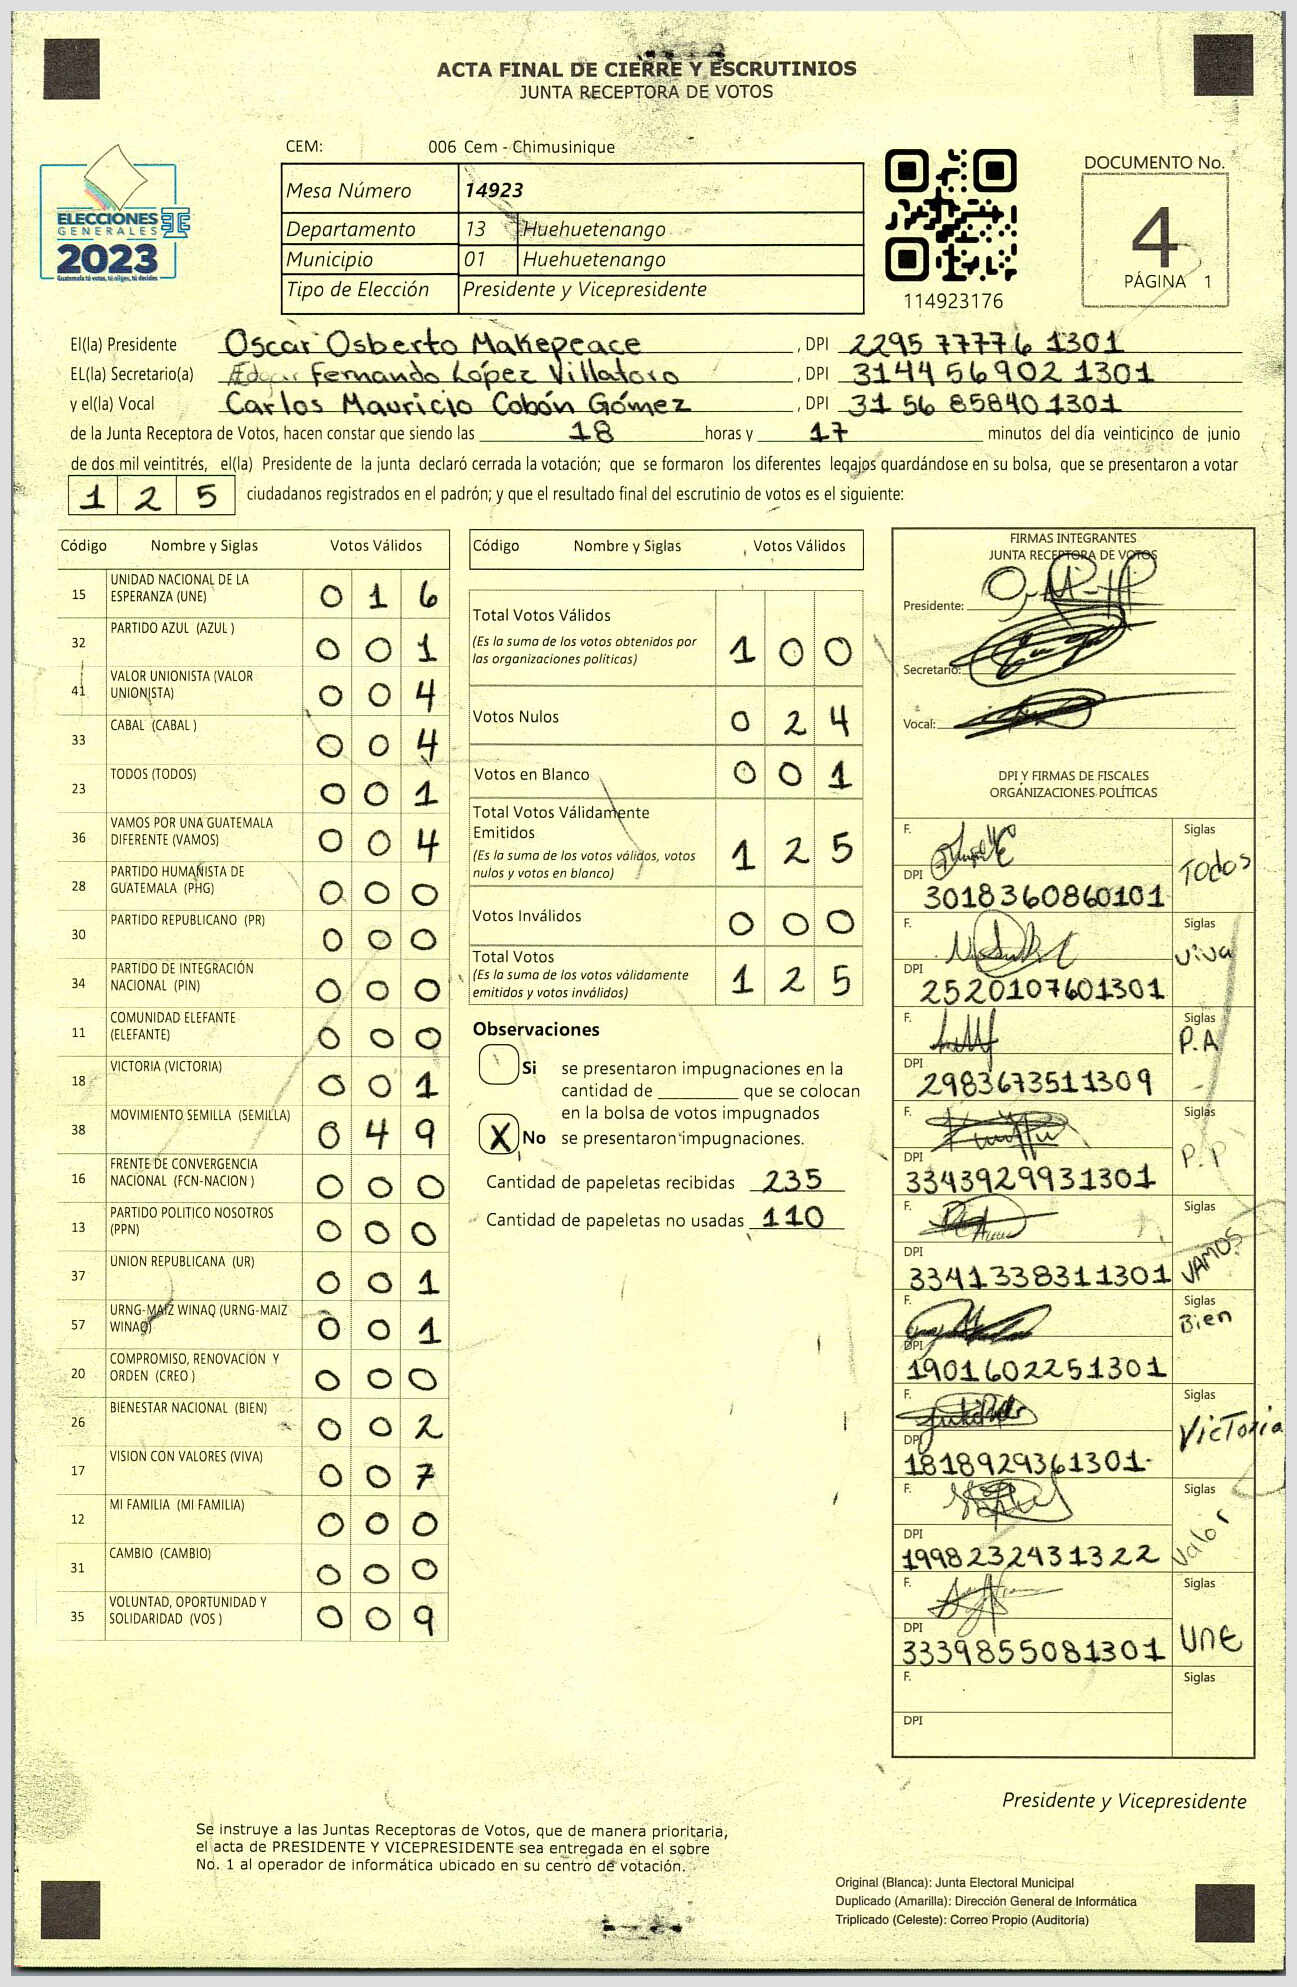 ACTA FINAL DE CIERRE Y ESCRUTINIOS
JUNTA RECEPTORA DE VOTOS
CEM: 006 Cem - Chimusinique
Mesa Número 14923
Departamento 13 Huehuetenango
Municipio 01 Huehuetenango
Tipo de Elección Presidente y Vicepresidente
ELECCIONES
GENERALES
2023
Guatemala tú votas, tú eliges, tú decides
114923176
DOCUMENTO No.
4
PÁGINA 1
El(la) Presidente Oscar Osberto Makepeace , DPI 2295 77776 1301
EL(la) Secretario(a) Edgar Fernando López Villatoro , DPI 3144 56902 1301
y el(la) Vocal Carlos Mauricio Cobón Gómez , DPI 31 56 85840 1301
de la Junta Receptora de Votos, hacen constar que siendo las 18 horas y 17 minutos del día veinticinco de junio
de dos mil veintitrés, el(la) Presidente de la junta declaró cerrada la votación; que se formaron los diferentes legajos quardándose en su bolsa, que se presentaron a votar
1 2 5 ciudadanos registrados en el padrón; y que el resultado final del escrutinio de votos es el siguiente:
Código Nombre y Siglas Votos Válidos
15 UNIDAD NACIONAL DE LA ESPERANZA (UNE) 0 1 6
32 PARTIDO AZUL (AZUL ) 0 0 1
41 VALOR UNIONISTA (VALOR UNIONISTA) 0 0 4
33 CABAL (CABAL ) 0 0 4
23 TODOS (TODOS) 0 0 1
36 VAMOS POR UNA GUATEMALA DIFERENTE (VAMOS) 0 0 4
28 PARTIDO HUMANISTA DE GUATEMALA (PHG) 0 0 0
30 PARTIDO REPUBLICANO (PR) 0 0 0
34 PARTIDO DE INTEGRACIÓN NACIONAL (PIN) 0 0 0
11 COMUNIDAD ELEFANTE (ELEFANTE) 0 0 0
18 VICTORIA (VICTORIA) 0 0 1
38 MOVIMIENTO SEMILLA (SEMILLA) 0 4 9
16 FRENTE DE CONVERGENCIA NACIONAL (FCN-NACION ) 0 0 0
13 PARTIDO POLITICO NOSOTROS (PPN) 0 0 0
37 UNION REPUBLICANA (UR) 0 0 1
57 URNG-MAIZ WINAQ (URNG-MAIZ WINAQ) 0 0 1
20 COMPROMISO, RENOVACION Y ORDEN (CREO ) 0 0 0
26 BIENESTAR NACIONAL (BIEN) 0 0 2
17 VISION CON VALORES (VIVA) 0 0 7
12 MI FAMILIA (MI FAMILIA) 0 0 0
31 CAMBIO (CAMBIO) 0 0 0
35 VOLUNTAD, OPORTUNIDAD Y SOLIDARIDAD (VOS ) 0 0 9
Código Nombre y Siglas Votos Válidos
Total Votos Válidos 1 0 0
(Es la suma de los votos obtenidos por
las organizaciones políticas)
Votos Nulos 0 2 4
Votos en Blanco 0 0 1
Total Votos Válidamente
Emitidos 1 2 5
(Es la suma de los votos válidos, votos
nulos y votos en blanco)
Votos Inválidos 0 0 0
Total Votos 1 2 5
(Es la suma de los votos válidamente
emitidos y votos inválidos)
Observaciones
Si se presentaron impugnaciones en la
cantidad de ________ que se colocan
en la bolsa de votos impugnados
X No se presentaron impugnaciones.
Cantidad de papeletas recibidas 235
Cantidad de papeletas no usadas 110
FIRMAS INTEGRANTES
JUNTA RECEPTORA DE VOTOS
Presidente:
Secretario:
Vocal:
DPI Y FIRMAS DE FISCALES
ORGANIZACIONES POLÍTICAS
F. Siglas Todos
DPI 3018360860101
F. Siglas Viva
DPI 2520107601301
F. Siglas P.A
DPI 2983673511309
F. Siglas P.P
DPI 3343929931301
F. Siglas VAMOS
DPI 3341338311301
F. Siglas Bien
DPI 1901602251301
F. Siglas Victoria
DPI 1818929361301
F. Siglas Valor
DPI 1998232431322
F. Siglas UNE
DPI 3339855081301
F. Siglas
DPI
Presidente y Vicepresidente
Se instruye a las Juntas Receptoras de Votos, que de manera prioritaria,
el acta de PRESIDENTE Y VICEPRESIDENTE sea entregada en el sobre
No. 1 al operador de informática ubicado en su centro de votación.
Original (Blanca): Junta Electoral Municipal
Duplicado (Amarilla): Dirección General de Informática
Triplicado (Celeste): Correo Propio (Auditoría)